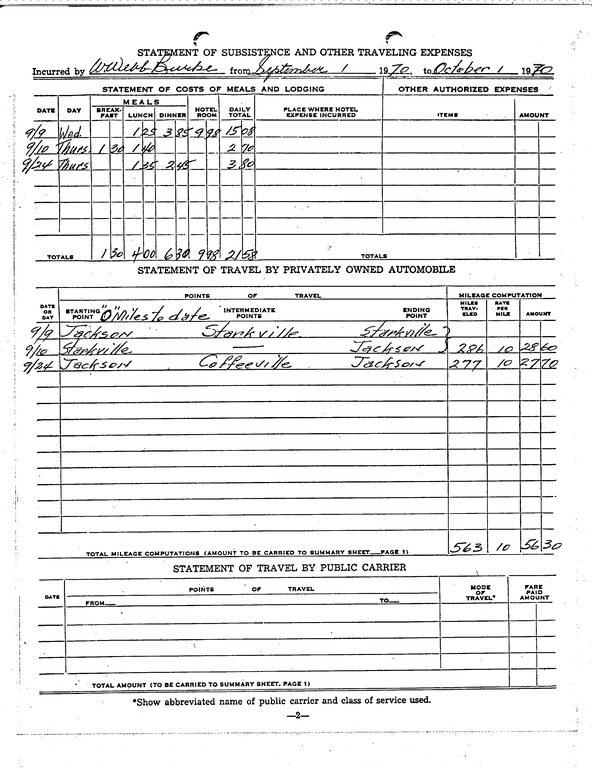 STATEMENT OF SUBSISTENCE AND OTHER TRAVELING EXPENSES
Incurred by W Webb Burke from September 1 1970, to October 1 1970
STATEMENT OF COSTS OF MEALS AND LODGING OTHER AUTHORIZED EXPENSES
DATE DAY MEALS BREAK-FAST LUNCH DINNER HOTEL ROOM DAILY TOTAL PLACE WHERE HOTEL EXPENSE INCURRED ITEMS AMOUNT
9/9 Wed. 1 25 3 85 9 98 15 08
9/10 Thurs 1 30 1 40 2 70
9/24 Thurs 1 35 2 45 3 80
TOTALS 1 30 4 00 6 30 9 98 21 58 TOTALS
STATEMENT OF TRAVEL BY PRIVATELY OWNED AUTOMOBILE
POINTS OF TRAVEL MILEAGE COMPUTATION
DATE OR DAY STARTING POINT "0" Miles to date INTERMEDIATE POINTS ENDING POINT MILES TRAV-ELED RATE PER MILE AMOUNT
9/9 Jackson Starkville Starkville }
9/10 Starkville — Jackson } 286 10 28 60
9/24 Jackson Coffeeville Jackson 277 10 27 70
TOTAL MILEAGE COMPUTATIONS (AMOUNT TO BE CARRIED TO SUMMARY SHEET—PAGE 1) 563 10 56 30
STATEMENT OF TRAVEL BY PUBLIC CARRIER
DATE POINTS OF TRAVEL MODE OF TRAVEL* FARE PAID AMOUNT
FROM— TO—
TOTAL AMOUNT (TO BE CARRIED TO SUMMARY SHEET, PAGE 1)
*Show abbreviated name of public carrier and class of service used.
—2—